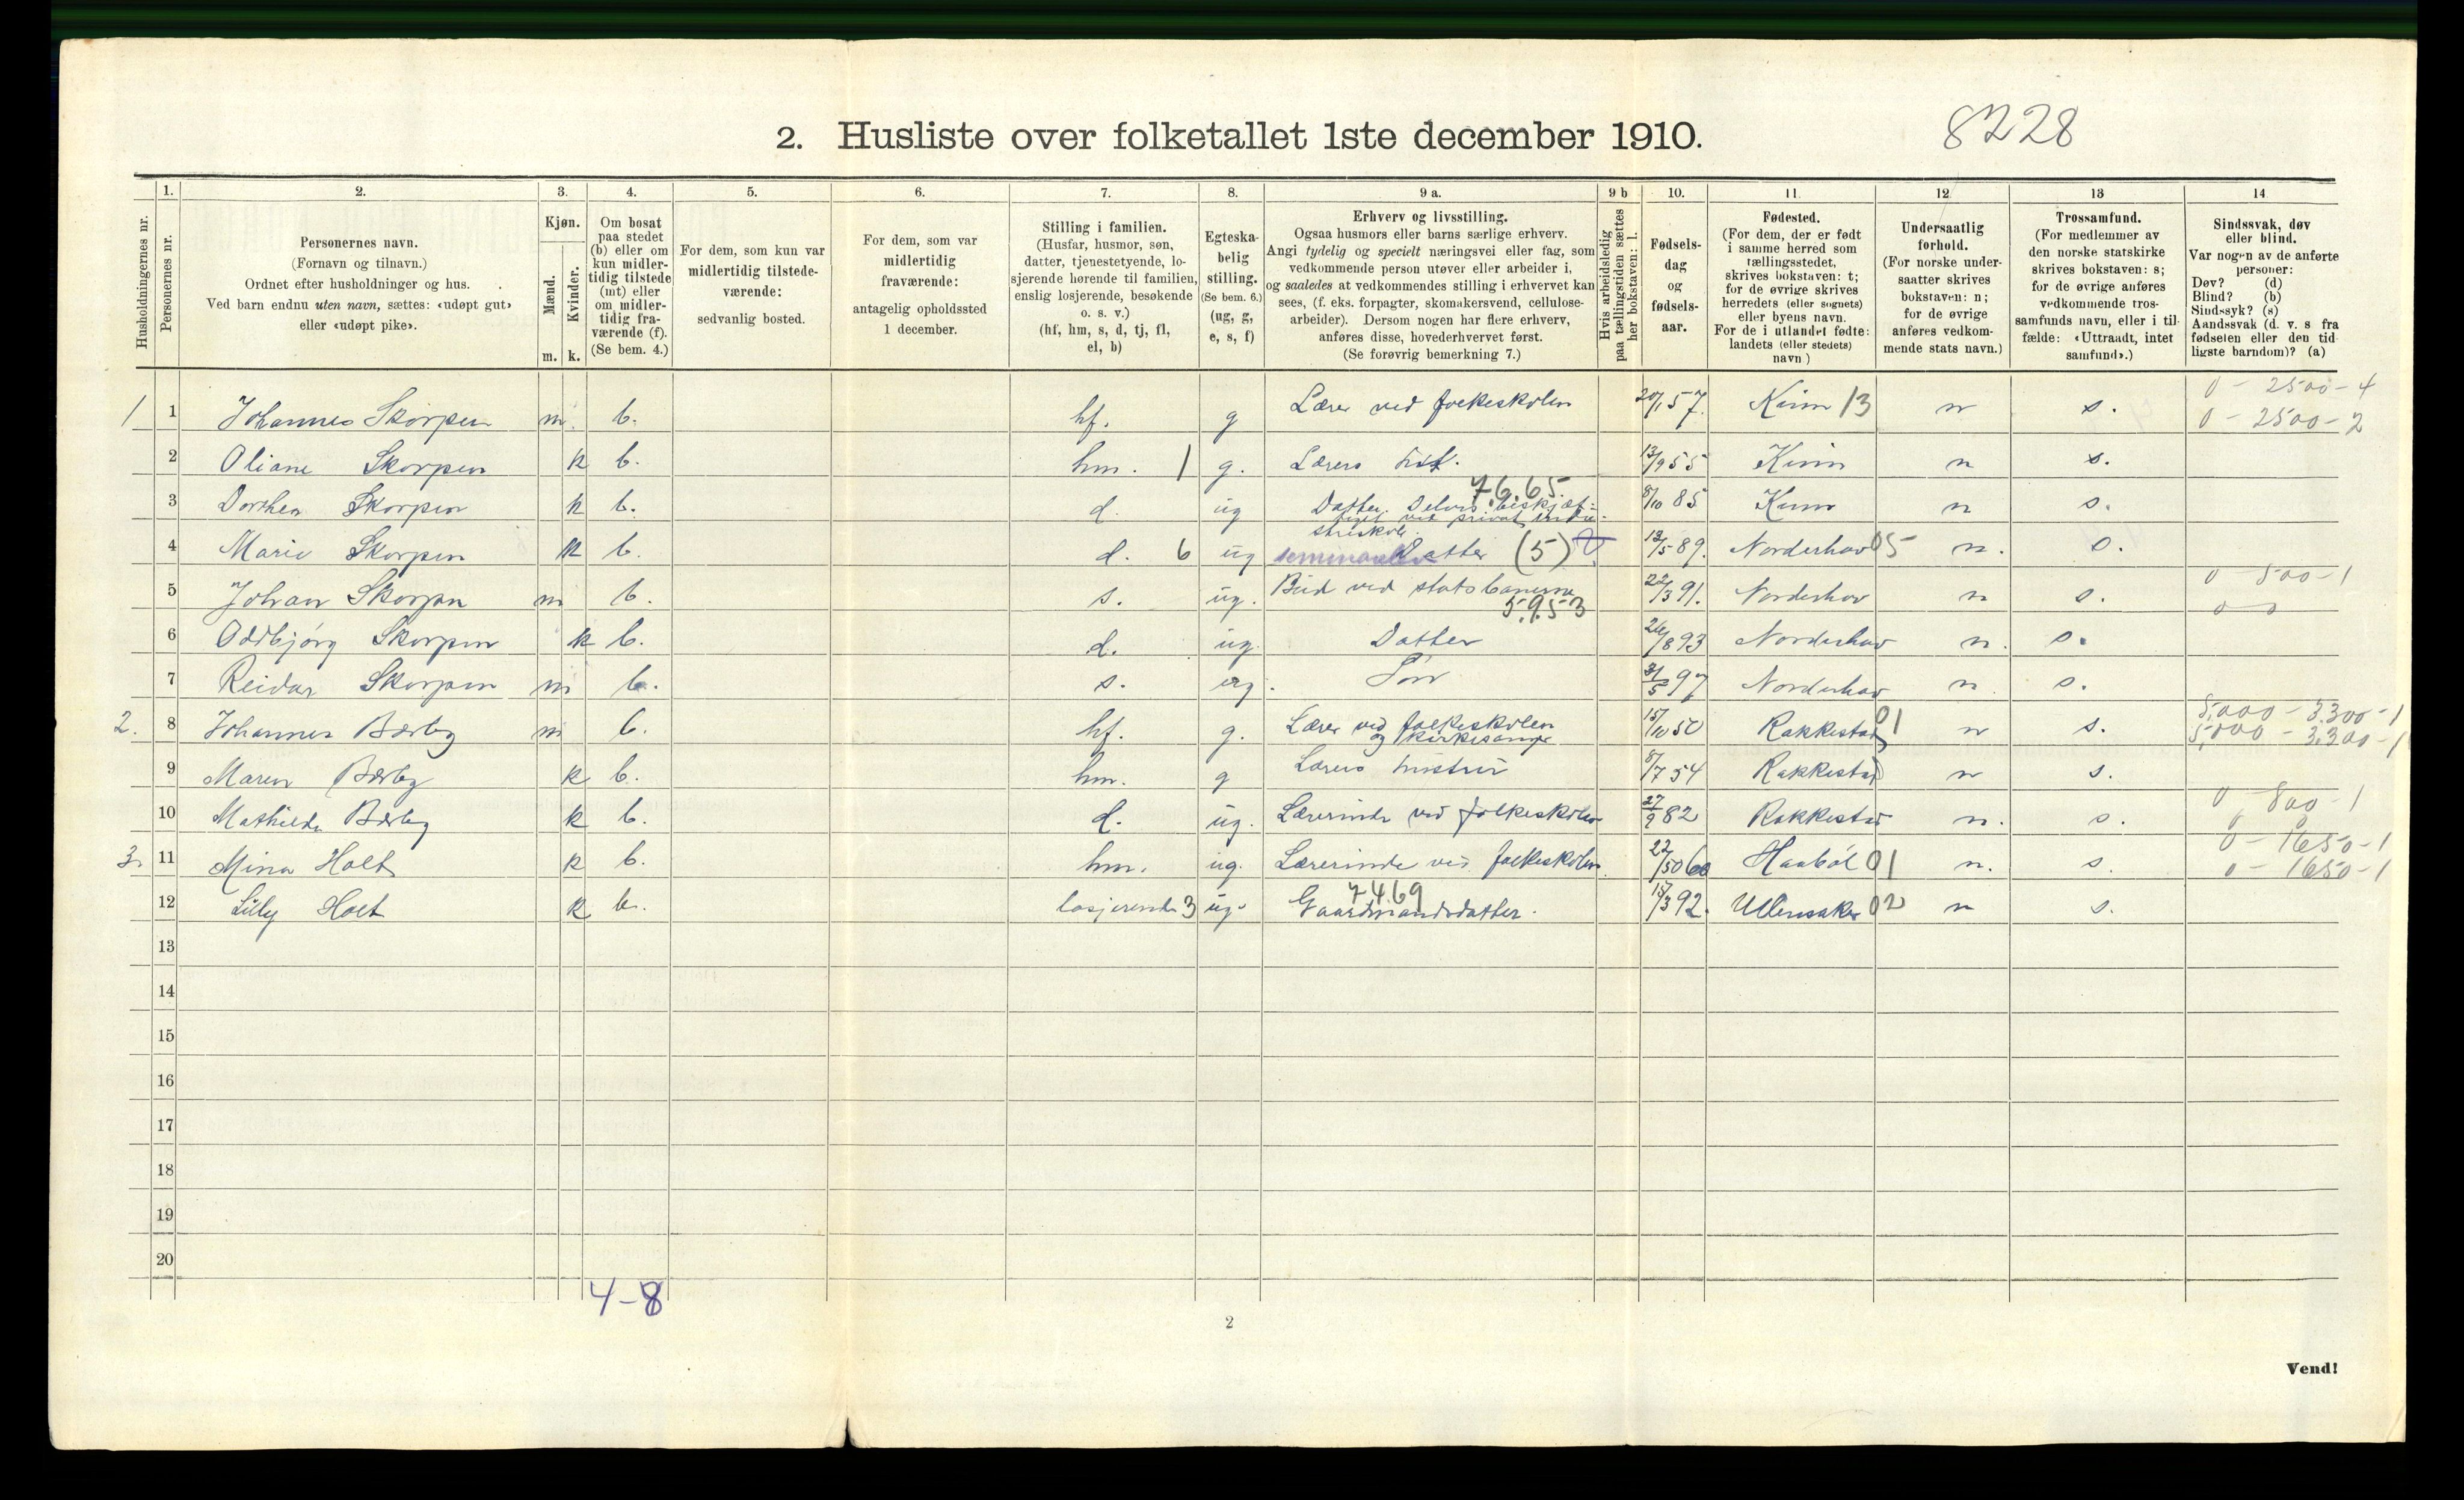 2. Husliste over folketallet 1ste december 1910.
8228
Husholdningernes nr.
1.
Personernes nr.
2.
Personernes navn.
(Fornavn og tilnavn.)
Ordnet efter husholdninger og hus.
Ved barn endnu uten navn, sættes: «udøpt gut»
eller «udøpt pike».
3.
Kjøn.
Mænd.
Kvinder.
m. k.
4.
Om bosat
paa stedet
(b) eller om
kun midler-
tidig tilstede
(mt) eller
om midler-
tidig fra-
værende (f).
(Se bem. 4.)
5.
For dem, som kun var
midlertidig tilstede-
værende:
sedvanlig bosted.
6.
For dem, som var
midlertidig
fraværende:
antagelig opholdssted
1 december.
7.
Stilling i familien.
(Husfar, husmor, søn,
datter, tjenestetyende, lo-
sjerende hørende til familien,
enslig losjerende, besøkende
o. s. v.)
(hf, hm, s, d, tj, fl,
el, b)
8.
Egteska-
belig
stilling.
(Se bem. 6.)
(ug, g,
e, s, f)
9 a.
Erhverv og livsstilling.
Ogsaa husmors eller barns særlige erhverv.
Angi tydelig og specielt næringsvei eller fag, som
vedkommende person utøver eller arbeider i,
og saaledes at vedkommendes stilling i erhvervet kan
sees, (f. eks. forpagter, skomakersvend, cellulose-
arbeider). Dersom nogen har flere erhverv,
anføres disse, hovederhvervet først.
(Se forøvrig bemerkning 7.)
9 b
Hvis arbeidsledig
paa tællingstiden sættes
her bokstaven: l.
10.
Fødsels-
dag
og
fødsels-
aar.
11.
Fødested.
(For dem, der er født
i samme herred som
tællingsstedet,
skrives bokstaven: t;
for de øvrige skrives
herredets (eller sognets)
eller byens navn.
For de i utlandet fødte:
landets (eller stedets)
navn.)
12.
Undersaatlig
forhold.
(For norske under-
saatter skrives
bokstaven: n;
for de øvrige
anføres vedkom-
mende stats navn.)
13
Trossamfund.
(For medlemmer av
den norske statskirke
skrives bokstaven: s;
for de øvrige anføres
vedkommende tros-
samfunds navn, eller i til-
fælde: «Uttraadt, intet
samfund».)
14
Sindssvak, døv
eller blind.
Var nogen av de anførte
personer:
Døv? (d)
Blind? (b)
Sindssyk? (s)
Aandssvak (d. v. s. fra
fødselen eller den tid-
ligste barndom)? (a)
1 1 Johannes Skorpen m. b. hf. g Lærer ved folkeskolen 20/1 57. Kinn 13 n s. 0 - 2500 - 4
0 - 2500 - 2
2 Oliane Skorpen k b. hm. 1 g. Lærers 13/9 55 Kinn n s.
7.6.65
3 Dorthea Skorpen k b. d. ug Datter. Delvis beskjæf- 8/10 85 Kinn n s.
tiget ved privat
4 Marie Skorpen k b. d. 6 ug Datter (5) 12/5 89. Norderhov 05 n. s.
5 Johan Skorpen m b. s. ug. Bud ved statsbanerne 22/3 91. Norderhov n s. 0 - 800 - 1
5.9.53 0 0
6 Oddbjørg Skorpen k b. d. ug. Datter 26/8 93 Norderhov n. s.
7 Reidar Skorpen m b. s. ug. Søn 31/5 97 Norderhov n s.
2. 8 Johannes Bærby m b. hf. g. Lærer ved folkeskolen 15/10 50 Rakkestad 01 n s. 5,000 - 3.300 - 1
og kirkesanger 5,000 - 3.300 - 1
9 Maren Bærby k b. hm. g Lærers hustru 8/7 54 Rakkestad n s.
10 Mathilde Bærby k b. d. ug. Lærerinde ved folkeskolen 27/9 82 Rakkestad n. s. 0 - 800 - 1
0 0
3. 11 Mina Holt k b. hm. ug. Lærerinde ved folkeskolen 60 Haabøl 01 n. s. 0 - 1650 - 1
0 - 1650 - 1
7469
12 Lilly Holt k b. losjerende 3 ug. Gaardmandsdatter. 15/3 92. Ullensaker 02 n s.
13
14
15
16
17
18
19
20
4-8
2
Vend!